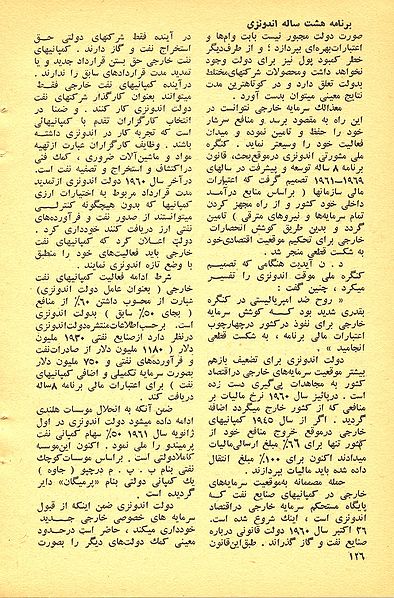 برنامه هشت ساله اندونزی
صورت دولت مجبور نیست بابت وامها و
اعتبارات بهره‌ای بپردازد ؛ و از طرف دیگر
خطر کمبود پول نیز برای دولت وجود
نخواهد داشت و محصولات شرکتهای مختلط
بدولت تعلق دارد و در کوتاهترین مدت
نتایج معینی میتوان بدست آورد .
معذالک سرمایه خارجی نتوانست در
این راه به مقصود برسد و منافع سرشار
خود را حفظ و تامین نموده و میدان
فعالیت خود را وسیعتر نماید . کنگره
ملی مشورتی اندونزی در موقع بحث، قانون
برنامه ۸ ساله توسعه و پیشرفت در سالهای
۱۹۶۹–۱۹۶۱ تصمیم گرفت که اعتبارات
مالی سازمانها ( براساس منابع درآمد
داخلی خود کشور و از راه مجهز کردن
تمام سرمایه‌ها و نیروهای مترقی ) تامین
گردد و بدین طریق کوشش انحصارات
خارجی برای تحکیم موقعیت اقتصادی خود
به شکست قطعی منجر شد .
د . ن آیدیت هنگامی که تصمیم
کنگره ملی موقت اندونزی را تفسیر
میکرد ، چنین گفت :
« روح ضد امپریالیستی در کنگره
بقدری شدید بود که کوشش سرمایه
خارجی برای نفوذ در کشور در چهارچوب
اعتبارات مالی برنامه ، به شکست قطعی
انجامید » .
دولت اندونزی برای تضعیف بازهم
بیشتر موقعیت سرمایه‌های خارجی در اقتصاد
کشور به مجاهدات پی‌گیری دست زده
است . در پائیز سال ۱۹۶۰ نرخ مالیات بر
منافعی که از کشور خارج میگردد اضافه
گردید . اگر از سال ۱۹۴۵ کمپانیهای
خارجی در موقع خروج منافع خود از
کشور تنها برای ۶۶٪ مبلغ ارسالی مالیات
میدادند اکنون برای ۱۰۰٪ مبلغ انتقال
داده شده باید مالیات بپردازند .
حمله مصممانه به موقعیت سرمایه‌های
خارجی در کمپانیهای صنایع نفت که
پایگاه مستحکم سرمایه خارجی در اقتصاد
اندونزی است ، اینک شروع شده است .
۲۶ اکتبر سال ۱۹۶۰ دولت قانونی درباره
صنایع نفت و گاز گذراند . طبق این قانون
در آینده فقط شرکتهای دولتی حق
استخراج نفت و گاز دارند . کمپانیهای
نفت خارجی حق بستن قرارداد جدید و یا
تمدید مدت قراردادهای سابق را ندارند .
درآینده کمپانیهای نفت خارجی فقط
میتوانند بعنوان کارگذار شرکتهای نفت
دولت اندونزی کار کنند . و ضمنا در
انتخاب کارگزاران تقدم با کمپانیهائی
است که تجربه کار در اندونزی داشته
باشند . وظایف کارگزاران عبارت از تهیه
مواد و ماشین‌آلات ضروری ، کمک فنی
در اکتشاف و استخراج و تصفیه نفت است.
در آخر سال ۱۹۶۰ دولت اندونزی از تمدید
مدت قرارداد مربوط به اختیارات ارزی
کمپانیها که بدون هیچگونه کنترلی
میتوانستند از صدور نفت و فرآورده‌های
نفتی ارز دریافت کنند خودداری کرد .
دولت اعلان کرد که کمپانیهای نفت
خارجی باید فعالیت‌های خود را منطبق
با وضع تازه اندونزی نمایند .
شرط ادامه فعالیت کمپانیهای نفت
خارجی ( بعنوان عامل دولت اندونزی)
عبارت از محسوب داشتن ۶۰٪ از منافع
( بجای ۵۰٪ سابق ) بدولت اندونزی
است . برحسب اطلاعات منتشره دولت اندونزی
در نظر دارد از صنایع نفتی ۱۹۳۰ میلیون
دلار ( ۱۱۸۰ میلیون دلار از صادرات نفت
و فرآورده‌های نفتی و ۷۵۰ میلیون دلار
بصورت سرمایه تکمیلی و اضافی کمپانیهای
نفت ) برای اعتبارات مالی برنامه ۸ ساله
دریافت کند .
ضمن آنکه به انحلال موسسات هلندی
ادامه داده میشود دولت اندونزی در اول
ژانویه سال ۱۹۶۱ ۵۰٪ سهام کمپانی نفت
پرمیندو را ملی نمود . اکنون این موسسه
کاملا دولتی است . براساس موسسات کوچک
نفتی بنام پ . پ . م درچپو ( جاوه )
یک کمپانی دولتی بنام «پرمیگان» دایر
گردیده است .
دولت اندونزی ضمن اینکه از قبول
سرمایه های خصوصی خارجی جدید
خودداری میکند ، حاضر است در حدود
معینی کمک دولت‌های دیگر را بصورت
۱۲۶